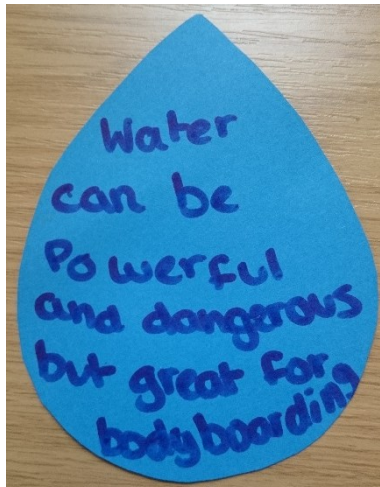 Water
can be
Powerful
and dangerous
but great for
bodyboarding